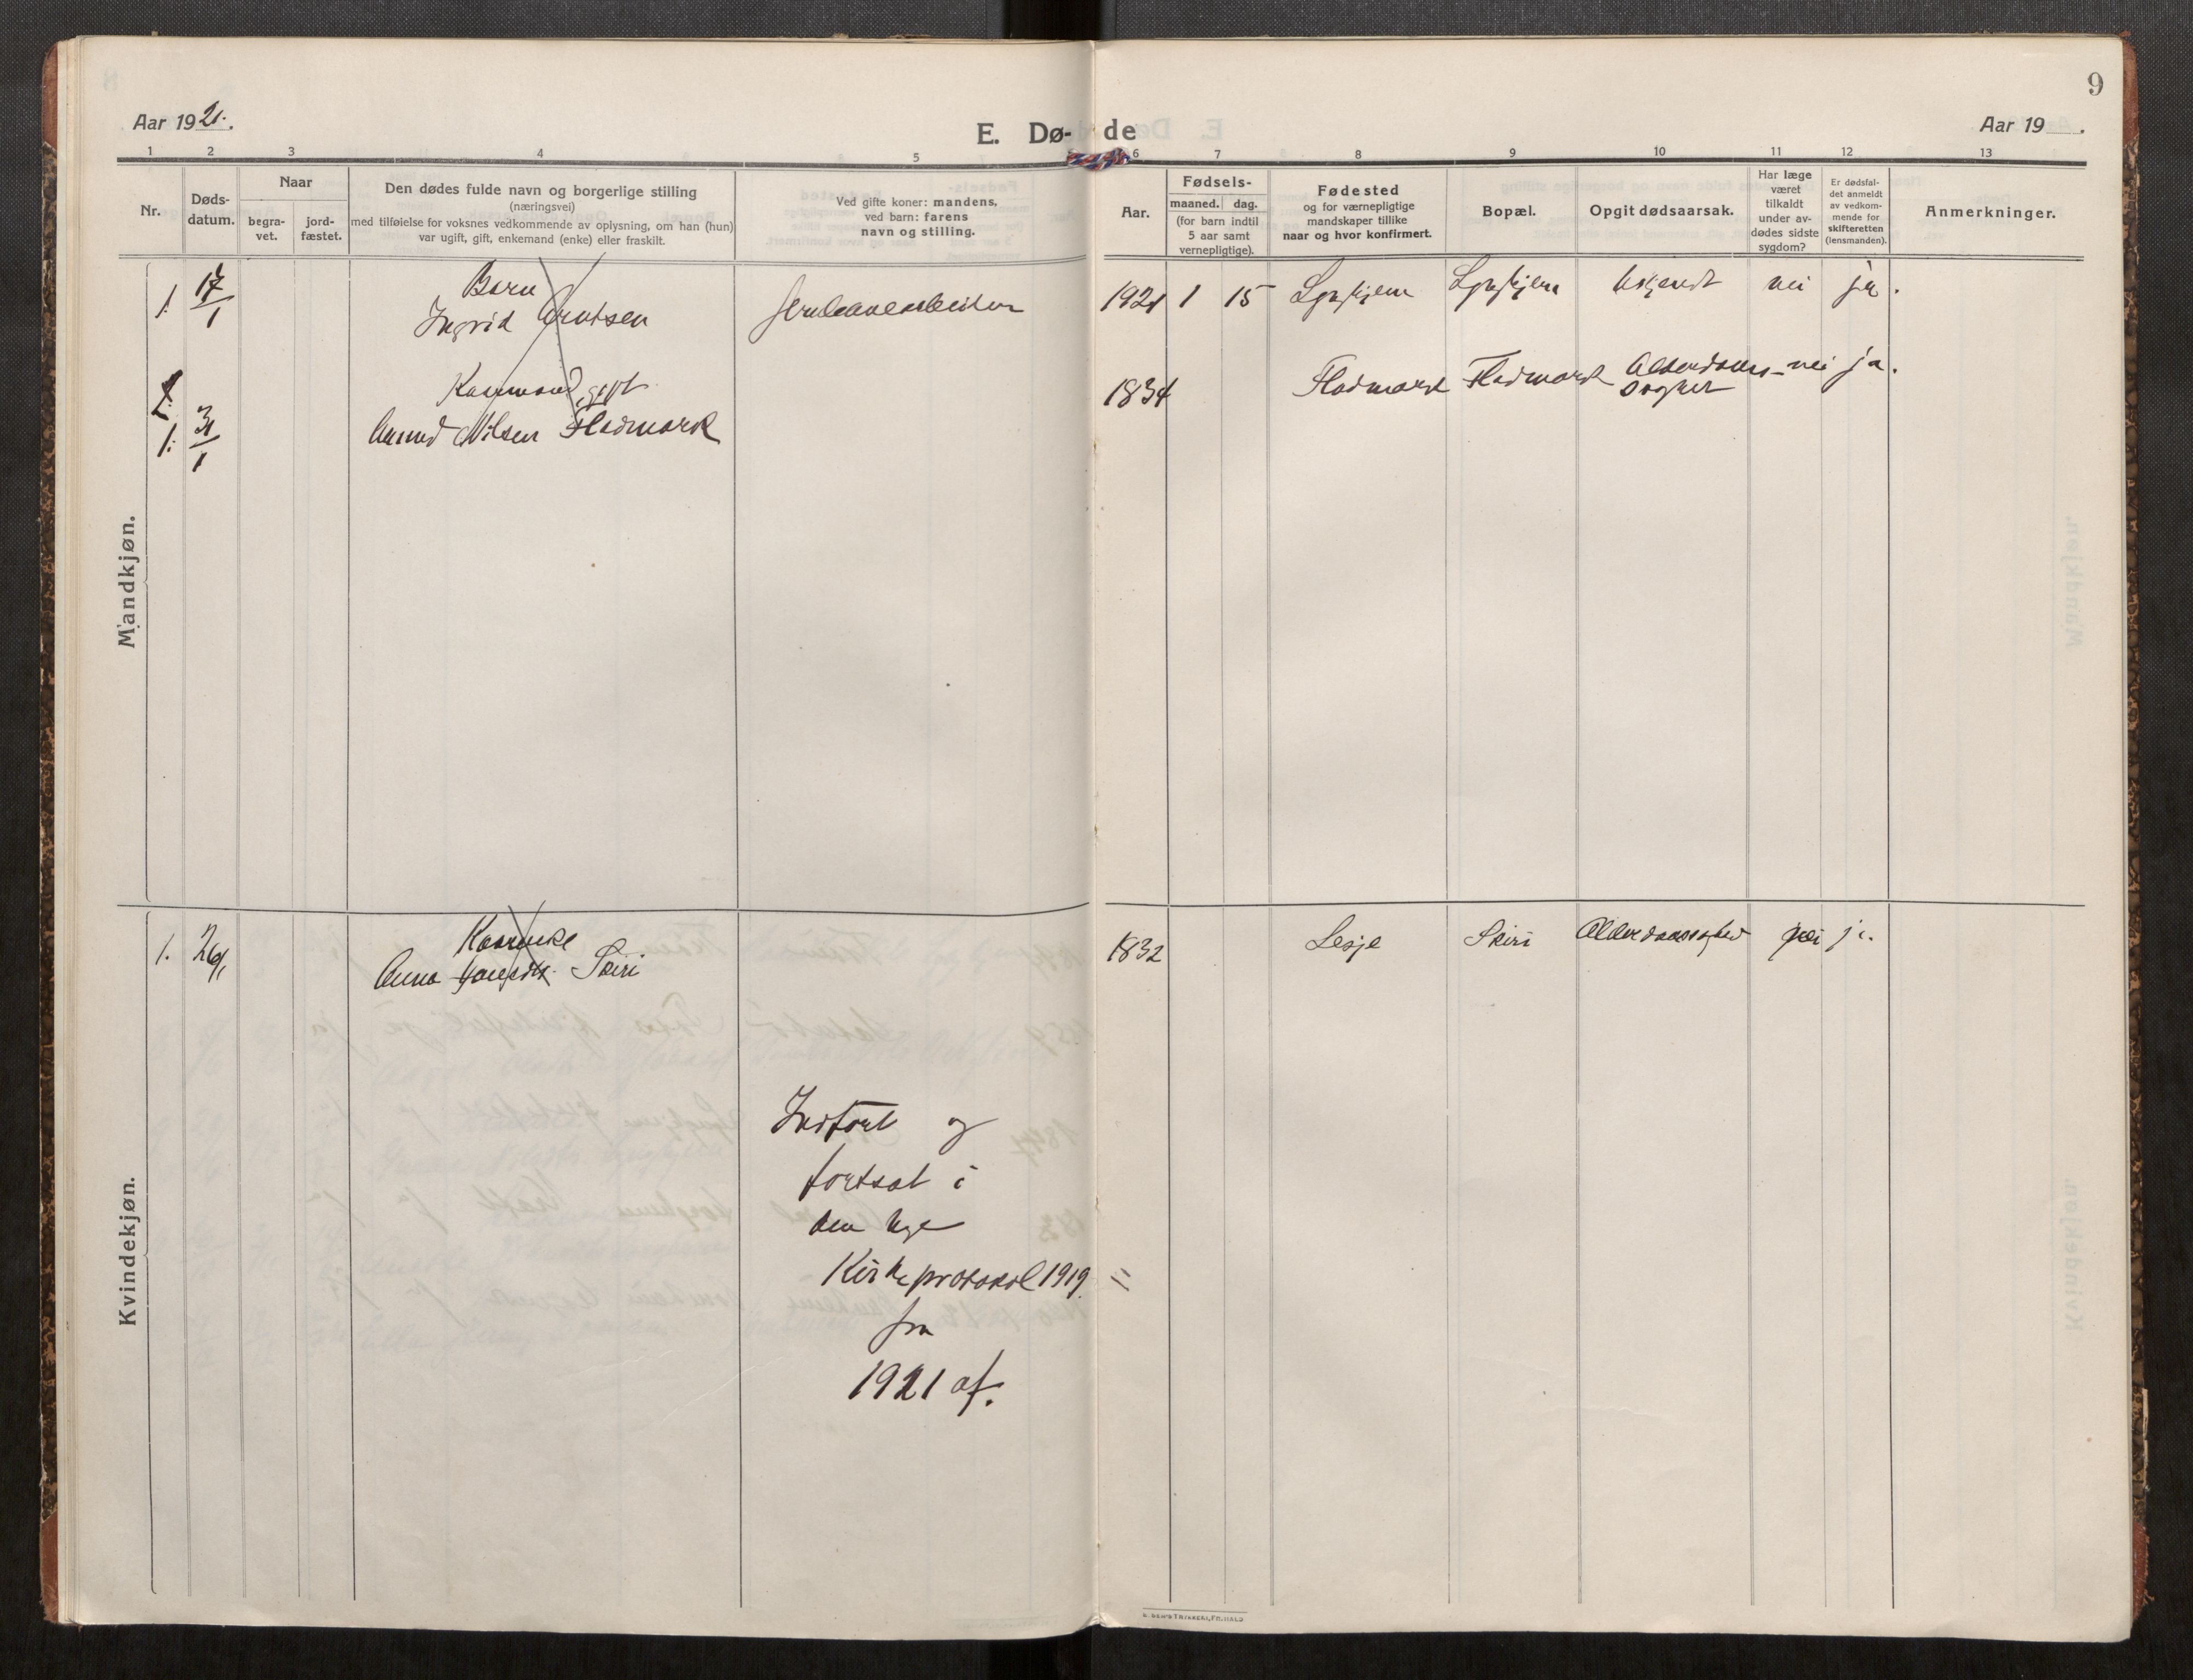 9
Aar 1921.
E. Dø- de
Aar 19 .
1 2 3 4 5 6 7 8 9 10 11 12 13
Nr.
Døds-
datum.
Naar
begra-
vet.
jord-
fæstet.
Den dødes fulde navn og borgerlige stilling
(næringsvei)
med tilføielse for voksnes vedkommende av oplysning, om han (hun)
var ugift, gift, enkemand (enke) eller fraskilt.
Ved gifte koner: mandens,
ved barn: farens
navn og stilling.
Aar.
Fødsels-
maaned. dag.
(for barn indtil
5 aar samt
vernepligtige).
Fødested
og for værnepligtige
mandskaper tillike
naar og hvor konfirmert.
Bopæl.
Opgit dødsaarsak.
Har læge
været
tilkaldt
under av-
dødes sidste
sygdom?
Er dødsfal-
det anmeldt
av vedkom-
mende for
skifteretten
(lensmanden).
Anmerkninger.
Mandkjøn.
1. 17/1 Barn
Ingrid Arntsen
1921 1 15 ukjendt nei ja.
Kaarmand, gift
1. 31/1 Amund Nilsen Fladmark
1834 Fladmark Fladmark Alderdoms-
nei ja.
Kvindekjøn.
1. 26/1
Anna Skiri
1832 Lesje Skiri nei ja.
Indført og
fortsat i
den nye
Kirkeprotokol 1919
fra
1921 af.